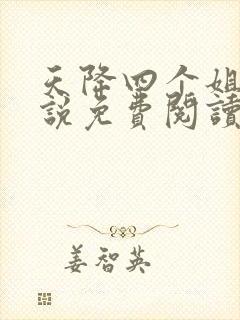 天降四个姐
說免費閱讀
姜智英